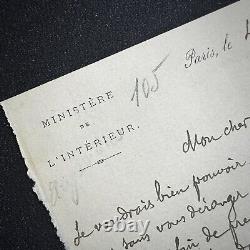 MINISTÈRE
DE
L'INTÉRIEUR.
105
Paris, le
Mon cher
Je voudrais bien pouvoir
sans vous déranger